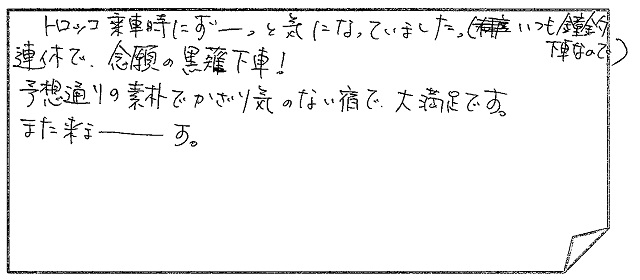 トロッコ乗車時にずーっと気になっていました。(いつも鐘釣
下車なので。)
連休で、念願の黒薙下車!
予想通りの素朴でかざり気のない宿で、大満足です。
また来ま――す。